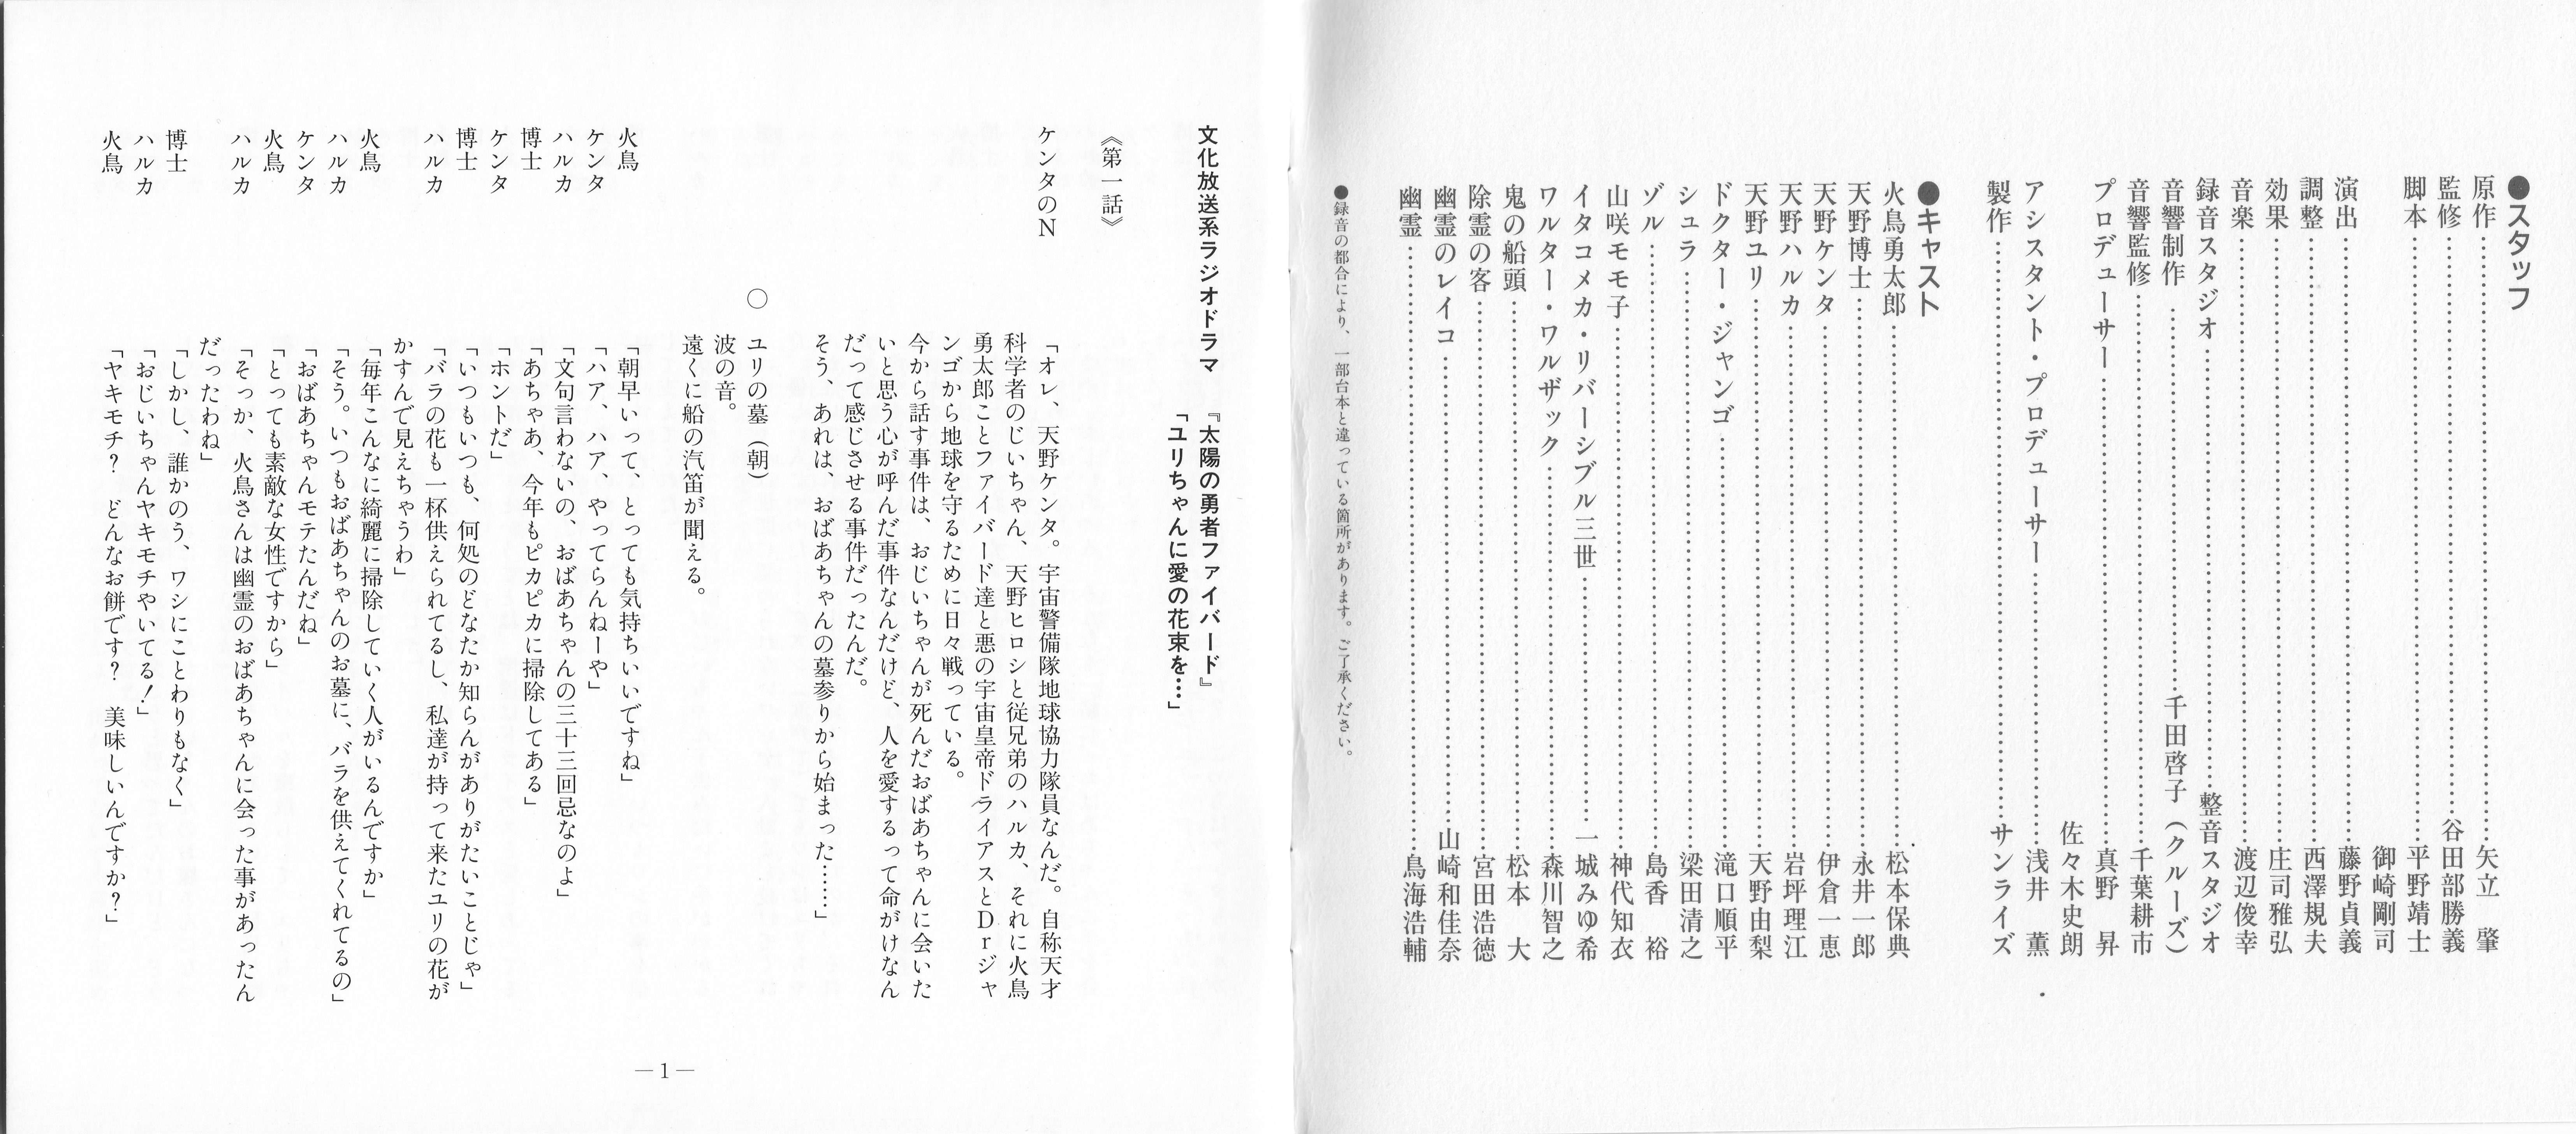 ●スタッフ
原作……矢立　肇
監修……谷田部勝義
脚本……平野靖士
御崎剛司
演出……藤野貞義
調整……西澤規夫
効果……庄司雅弘
音楽……渡辺俊幸
録音スタジオ……整音スタジオ
音響制作……千田啓子（クルーズ）
音響監修……千葉耕市
プロデューサー……真野　昇
佐々木史朗
アシスタント・プロデューサー……浅井　薫
製作……サンライズ
●キャスト
火鳥勇太郎……松本保典
天野博士……永井一郎
天野ケンタ……伊倉一恵
天野ハルカ……岩坪理江
天野ユリ……天野由梨
ドクター・ジャンゴ……滝口順平
シュラ……梁田清之
ゾル……島香　裕
山咲モモ子……神代知衣
イタコメカ・リバーシブル三世……一城みゆ希
ワルター・ワルザック……森川智之
鬼の船頭……松本　大
除霊の客……宮田浩徳
幽霊のレイコ……山崎和佳奈
幽霊……鳥海浩輔
●録音の都合により、一部台本と違っている箇所があります。ご了承ください。
文化放送系ラジオドラマ　『太陽の勇者ファイバード』
「ユリちゃんに愛の花束を…」
《第一話》
ケンタのN　「オレ、天野ケンタ。宇宙警備隊地球協力隊員なんだ。自称天才
科学者のじいちゃん、天野ヒロシと従兄弟のハルカ、それに火鳥
勇太郎ことファイバード達と悪の宇宙皇帝ドライアスとDrジャ
ンゴから地球を守るために日々戦っている。
今から話す事件は、おじいちゃんが死んだおばあちゃんに会いた
いと思う心が呼んだ事件なんだけど、人を愛するって命がけなん
だって感じさせる事件だったんだ。
そう、あれは、おばあちゃんの墓参りから始まった……」
○　ユリの墓（朝）
波の音。
遠くに船の汽笛が聞える。
火鳥　「朝早いって、とっても気持ちいいですね」
ケンタ　「ハア、ハア、やってらんねーや」
ハルカ　「文句言わないの、おばあちゃんの三十三回忌なのよ」
博士　「あちゃあ、今年もピカピカに掃除してある」
ケンタ　「ホントだ」
博士　「いつもいつも、何処のどなたか知らんがありがたいことじゃ」
ハルカ　「バラの花も一杯供えられてるし、私達が持って来たユリの花が
かすんで見えちゃうわ」
火鳥　「毎年こんなに綺麗に掃除していく人がいるんですか」
ハルカ　「そう。いつもおばあちゃんのお墓に、バラを供えてくれてるの」
ケンタ　「おばあちゃんモテたんだね」
火鳥　「とっても素敵な女性ですから」
ハルカ　「そっか、火鳥さんは幽霊のおばあちゃんに会った事があったん
だったわね」
博士　「しかし、誰かのう、ワシにことわりもなく」
ハルカ　「おじいちゃんヤキモチやいてる！」
火鳥　「ヤキモチ？　どんなお餅です？　美味しいんですか？」
—1—